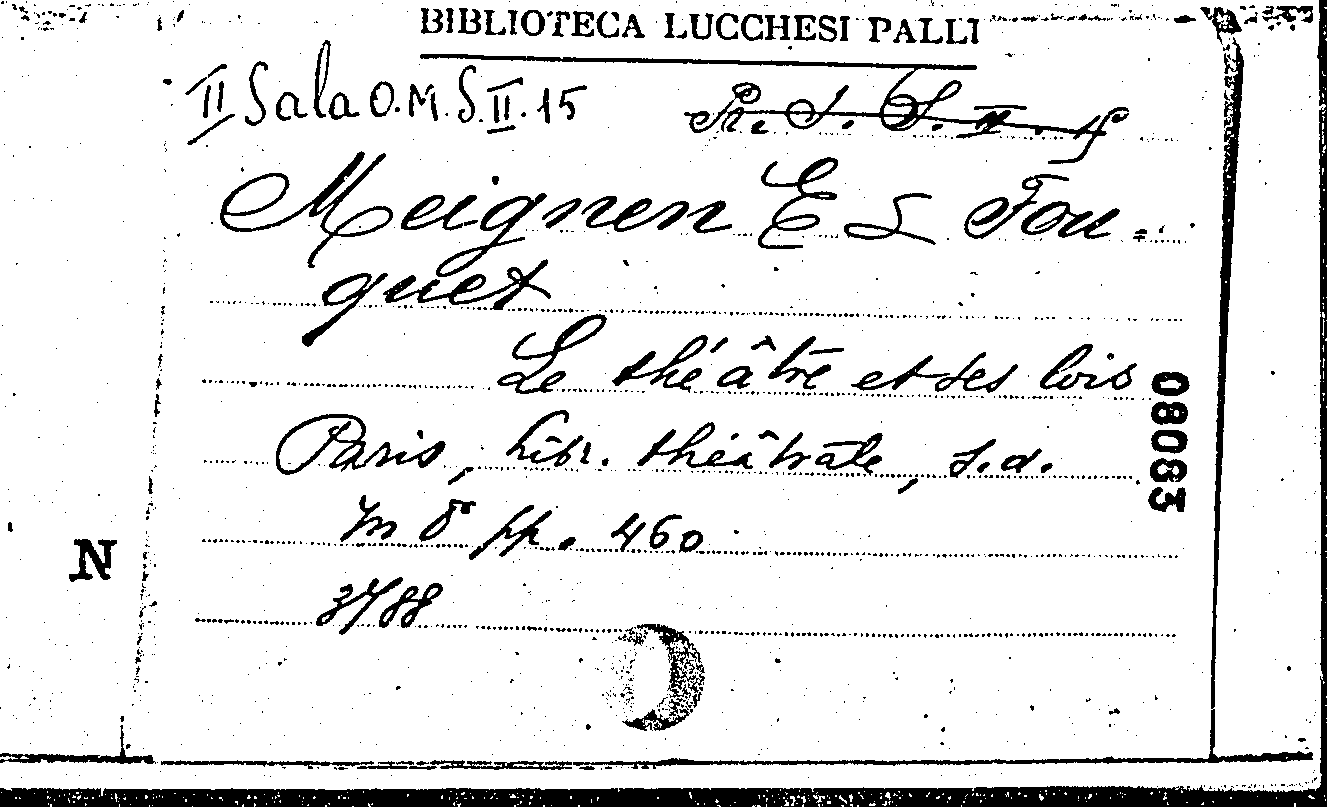 BIBLIOTECA LUCCHESI PALLI
II Sala O.M.S.II.15
Meignen E L Fou=
quet
Le théâtre et ses lois
Paris, Libr. théâtrale, s.d.
in 8° pp. 460
3788
08083
N